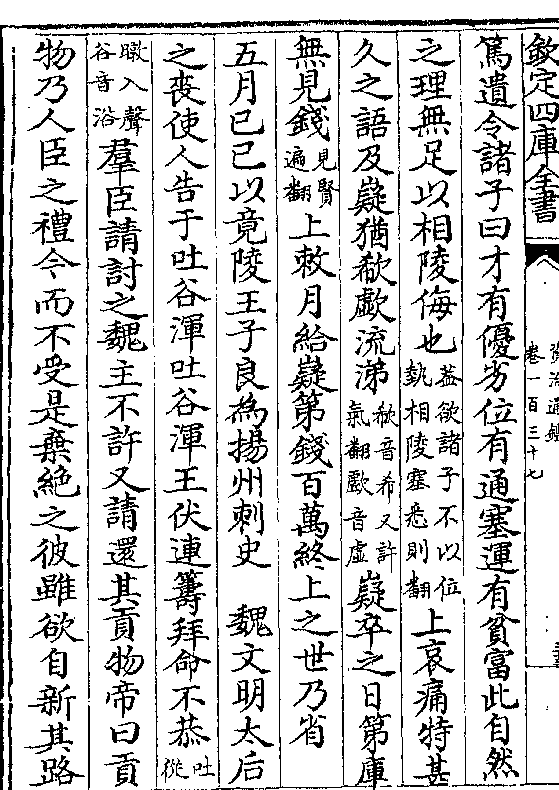 欽定四庫全書
資治通鑑
卷一百三十七
篤遺令諸子曰才有優劣位有通塞運有貧富此自然
之理無足以相陵侮也蓋欲諸子不以位埶相陵塞悉則翻上哀痛特甚
久之語及嶷猶欷歔流涕欷音希又許氣翻歔音虛嶷卒之日第庫
無見錢見賢遍翻上敕月給嶷第錢百萬終上之世乃省
五月己巳以竟陵王子良為揚州刺史 魏文明太后
之喪使人告于吐谷渾吐谷渾王伏連籌拜命不恭吐從
暾入聲谷音浴羣臣請討之魏主不許又請還其貢物帝曰貢
物乃人臣之禮今而不受是棄絶之彼雖欲自新其路